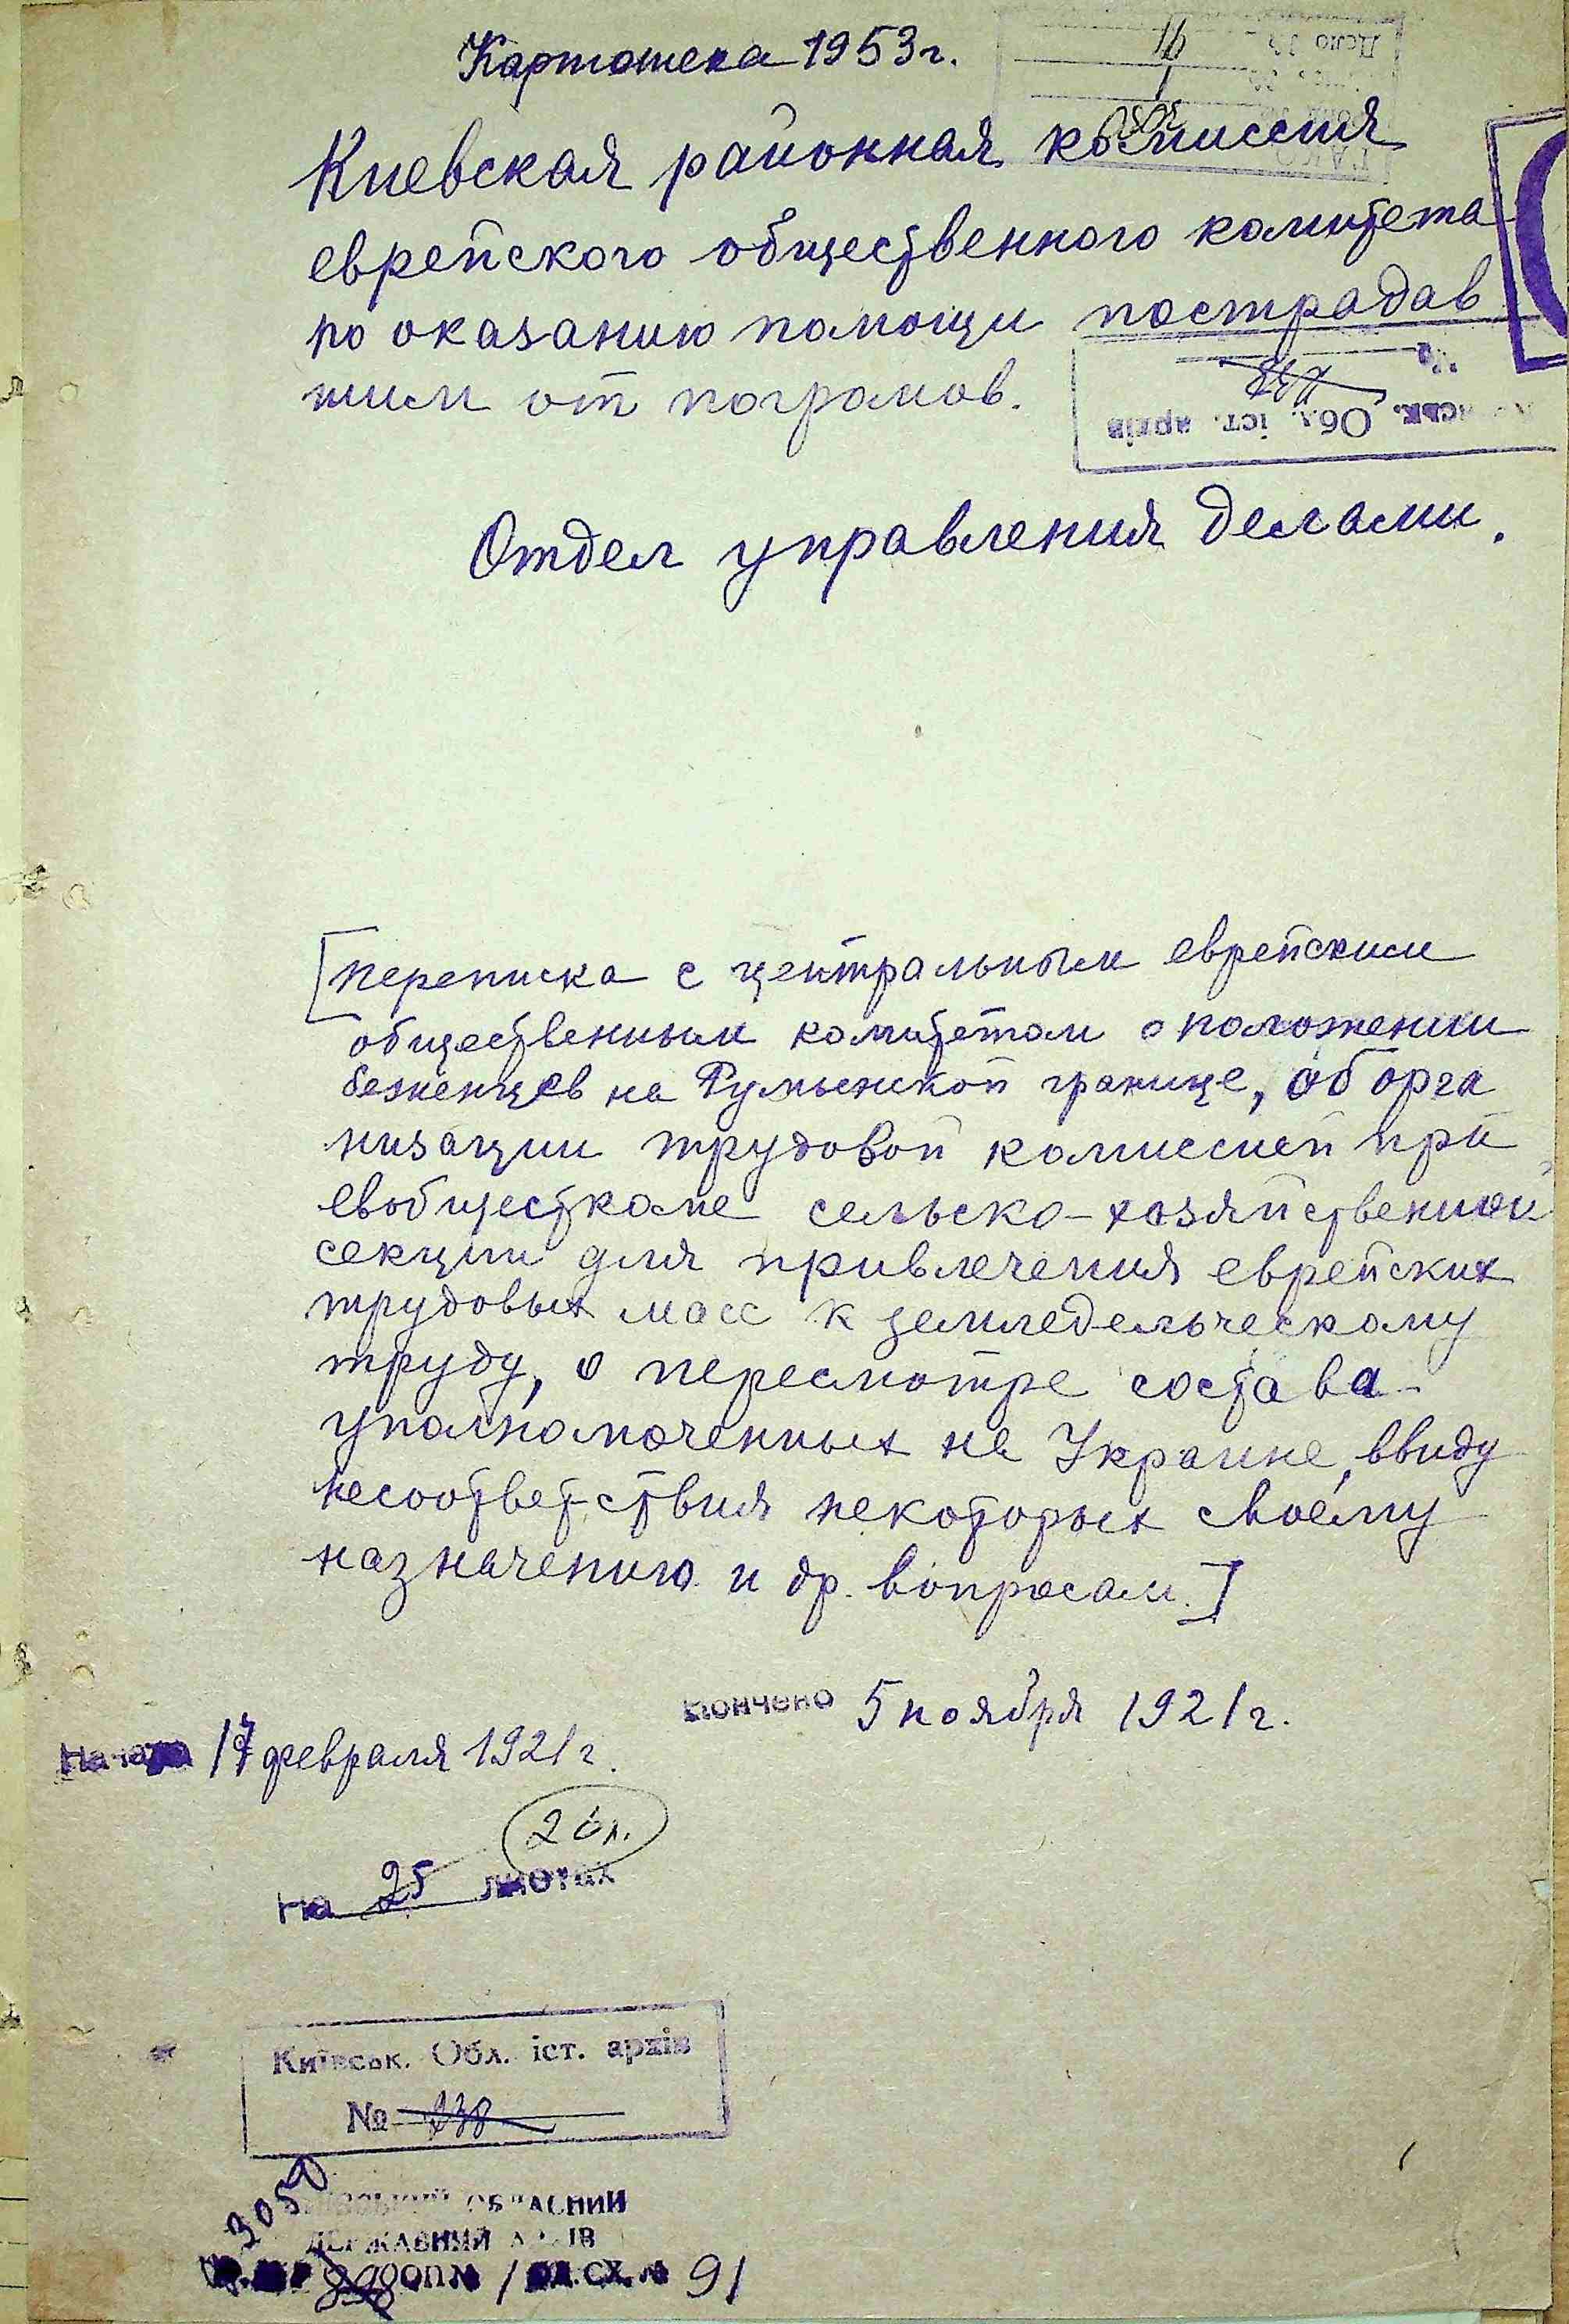 Картотека 1953 г.
Киевская районная комиссия
еврейского общественного комитета
по оказанию помощи пострадав
шим от погромов.
Обл. іст. архів
Отдел управления делами.
[Переписка с центральным еврейским
общественным комитетом о положении
беженцев на Румынской границе, об орга
низации трудовой комиссией при
евобщесткоме сельско-хозяйственной
секции для привлечения еврейских
трудовых масс к земледельческому
труду, о пересмотре состава
уполномоченных на Украине, ввиду
несоответствия некоторых своему
назначению и др. вопросам.]
Кончено 5 ноября 1921 г.
Начато 17 февраля 1921 г.
26 л.
На 25 листах
Київськ. Обл. іст. архів
№ 238
3050
КИЇВСЬКИЙ ОБЛАСНИЙ
ДЕРЖАВНИЙ АРХІВ
ОП № 1 ОД. СХ. № 91